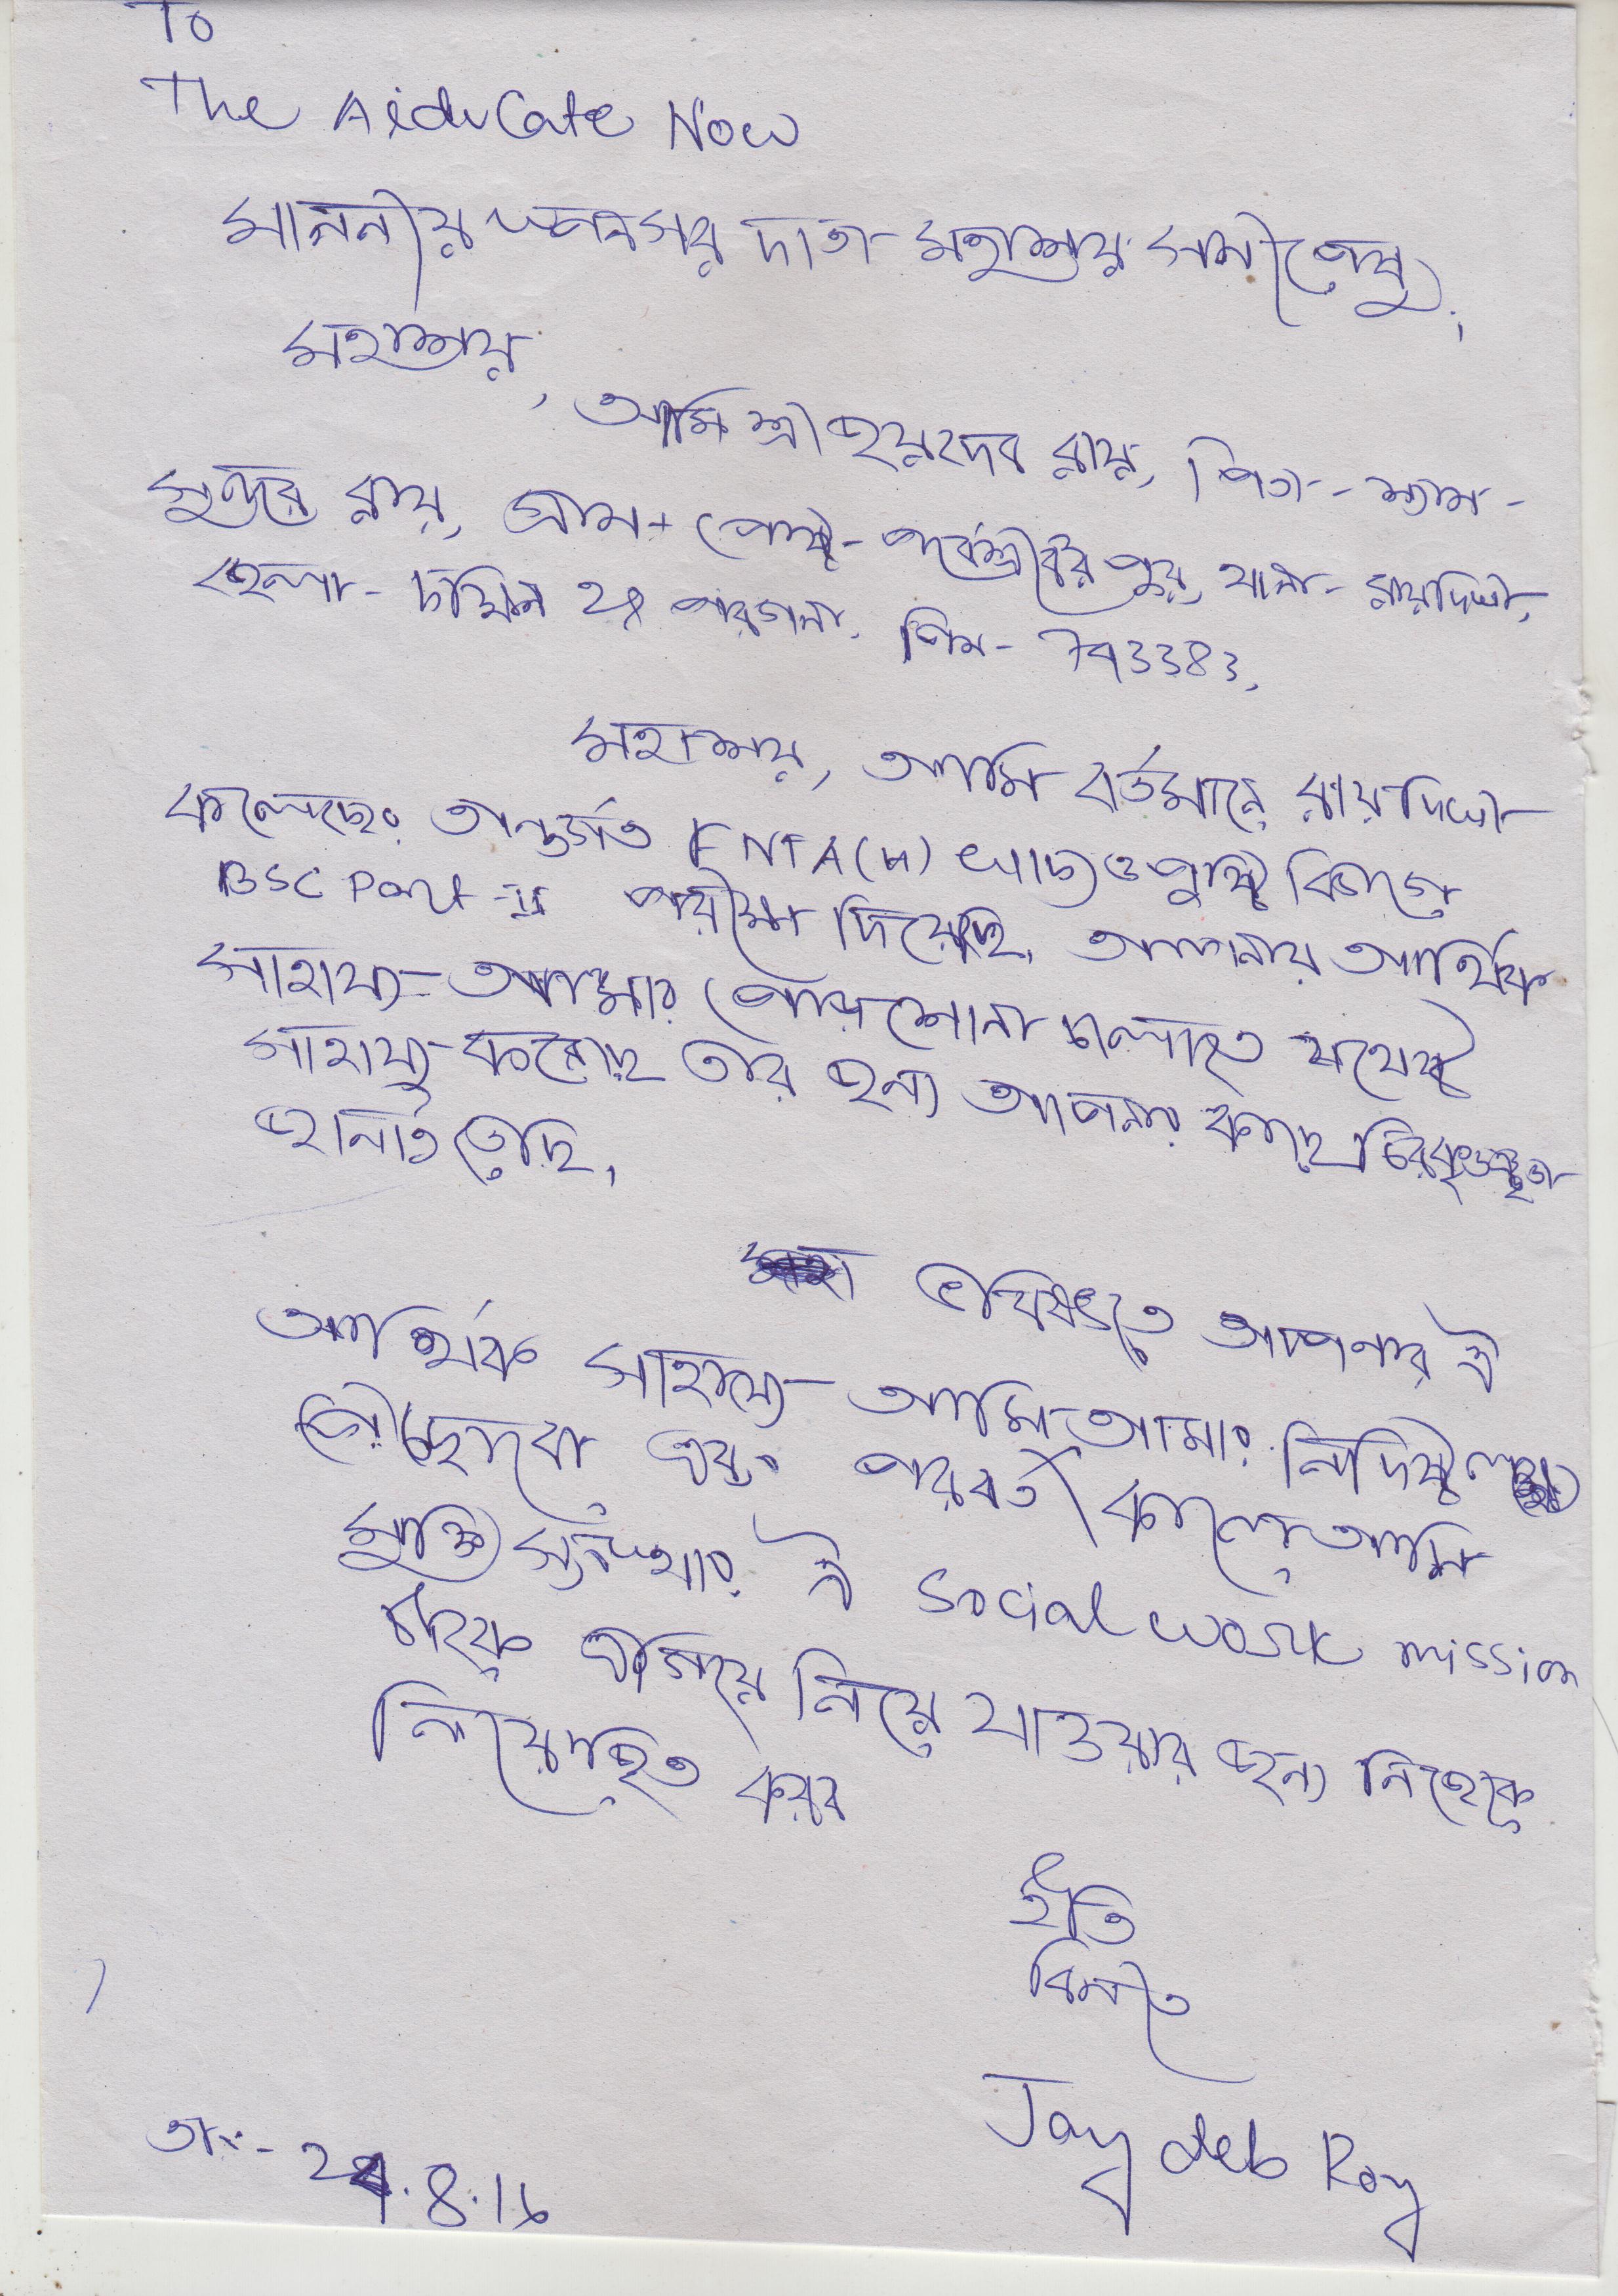 To
The Aiducate Now
মাননীয় স্পনসর দাতা মহাশয় সমীপেষু,
মহাশয়,
আমি শ্রী জয়দেব রায়, পিতা - শ্যাম -
সুন্দর রায়, গ্রাম + পোষ্ট - থানা - রায়দিঘী,
জেলা - দক্ষিন ২৪ পরগনা, পিন - 743383,
মহাশয়, আমি বর্তমানে রায়দিঘী
কলেজের অন্তর্গত FNTA(H) খাদ্য ও পুষ্টি বিভাগে
BSC Part-II পরীক্ষা দিয়েছি, আপনার আর্থিক
সাহায্য আমার পোড়াশোনা চালাতে যথেষ্ট
সাহায্য করেছে তার জন্য আপনার কাছে চিরকৃতজ্ঞতা
জানাইতেছি,
ভবিষ্যতে আপনার ঐ
আর্থিক সাহায্যে আমি আমার নির্দিষ্ট লক্ষ্যে
পৌছোবো এবং পরবর্তী কালে আমি
মুক্তি সংস্থার ঐ social work mission
টাকে এগিয়ে নিয়ে যাওয়ার জন্য নিজেকে
নিয়োজিত করব
ইতি
বিনীত
Jaydeb Roy
তাং- 24.8.16